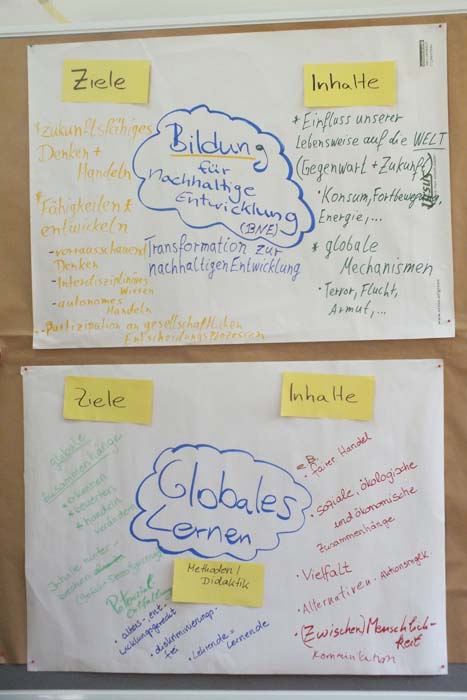 Ziele
* zukunftsfähiges
Denken +
Handeln
* Fähigkeiten
entwickeln
- vorrausschauend
Denken
- Interdisziplinäres
Wissen
- autonomes
Handeln
- Partizipation an gesellschaftlichen
Entscheidungsprozessen
Bildung
für
nachhaltige
Entwicklung
(BNE)
Transformation zur
nachhaltigen Entwicklung
Inhalte
* Einfluss unserer
Lebensweise auf die WELT
(Gegenwart + Zukunft)
• Konsum, Fortbewegung,
Energie, ...
* globale
Mechanismen
• Terror, Flucht,
Armut, ...
Ziele
globale
Zusammenhänge
* erkennen
* bewerten
* handeln
verändern
Inhalte
Potenzial
entfalten
Globales
Lernen
Methoden/
Didaktik
• alters-, ent-
wicklungsgerecht
• diskriminierungs-
frei
• Lehrende =
Lernende
Inhalte
z.B.
• fairer Handel
• soziale, ökologische
und ökonomische
Zusammenhänge
• Vielfalt
• Alternativen
• (Zwischen)Menschlich-
keit
Kommunikation